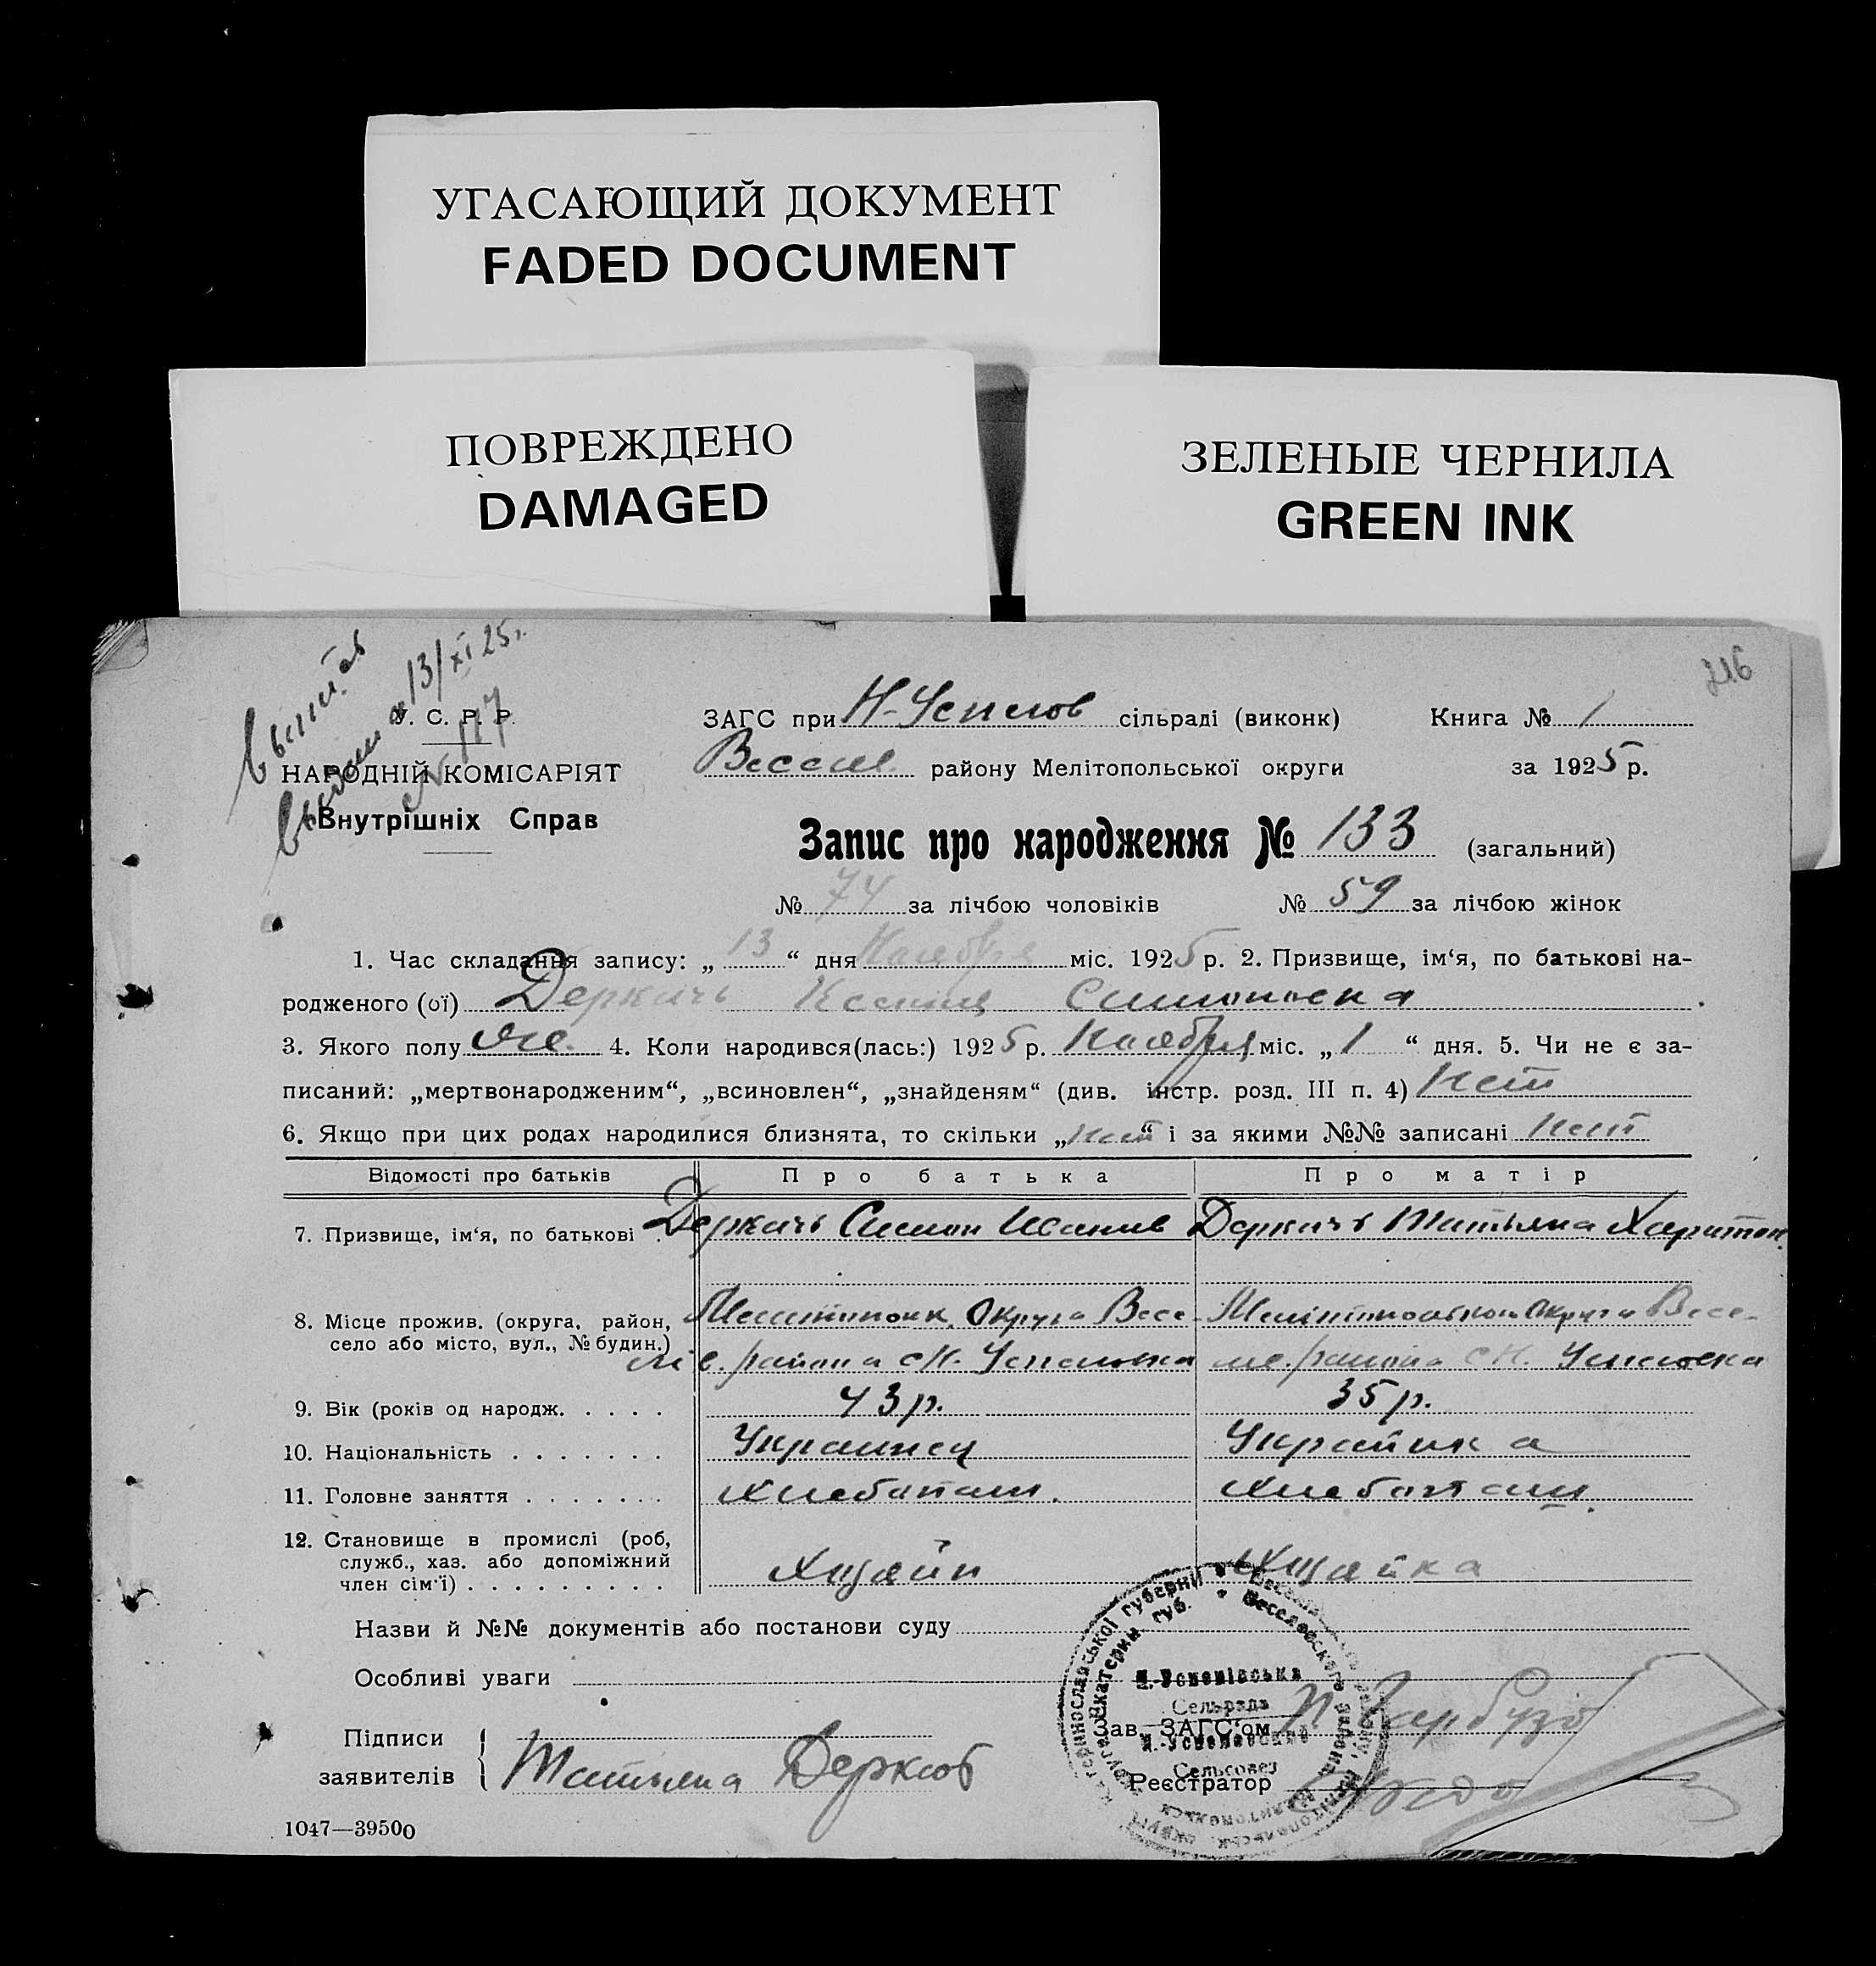 УГАСАЮЩИЙ ДОКУМЕНТ
FADED DOCUMENT
ПОВРЕЖДЕНО
DAMAGED
ЗЕЛЕНЫЕ ЧЕРНИЛА
GREEN INK
216
13/XI 25 г.
№ 117
У. С. Р. Р.
НАРОДНІЙ КОМІСАРІЯТ
Внутрішніх Справ
ЗАГС при Н-Успенов сільраді (виконк) Книга № 1
Весел. району Мелітопольської округи за 1925 р.
Запис про народження № 133 (загальний)
№ 74 за лічбою чоловіків № 59 за лічбою жінок
1. Час складання запису: „13“ дня Ноября міс. 1925 р. 2. Призвище, ім‘я, по батькові на-
родженого (ої) Деркачь Ксения Симоновна.
3. Якого полу Же. 4. Коли народився(лась:) 1925 р. Ноября міс. „1“ дня. 5. Чи не є за-
писаний: „мертвонародженим“, „всиновлен“, „знайденям“ (див. інстр. розд. III п. 4) Нет
6. Якщо при цих родах народилися близнята, то скільки „Нет“ і за якими №№ записані Нет
Відомості про батьків Про батька Про матір
7. Призвище, ім‘я, по батькові . Деркачь Симон Иванов Деркачь Татьяна Харитон.
8. Місце прожив. (округа, район, село або місто, вул., № будин.)
Мелитопольк. Округа Весе- Мелитопольской Округи Весе-
ле. района с Н. Успеновка ле. района с Н. Успеновка
9. Вік (років од народж. . . . . 43 р. 35 р.
10. Національність . . . . . . . Украинец Украинка
11. Головне заняття . . . . . . . Хлебопаш. Хлебопаш.
12. Становище в промислі (роб,
служб., хаз. або допоміжний
член сім‘ї) . . . . . . . . . Хозяин Хозяйка
Назви й №№ документів або постанови суду
Особливі уваги
Підписи
заявителів Татьяна Деркач
Зав. ЗАГС‘ом
Реєстратор
Н.-Успенівська
Сельрада
Н.-Успеновский
Сельсовет
1047—39500